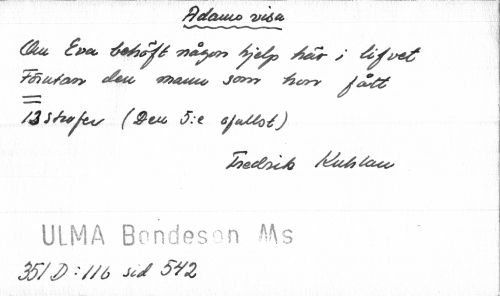 Adams visa
Om Eva behöft någon hjelp här i lifvet
Förutan den mann som hon fått
13 strofer (Den 5:e ofullst)
Fredrik Kuhlau
ULMA Bondeson Ms
351 D:116 sid 542